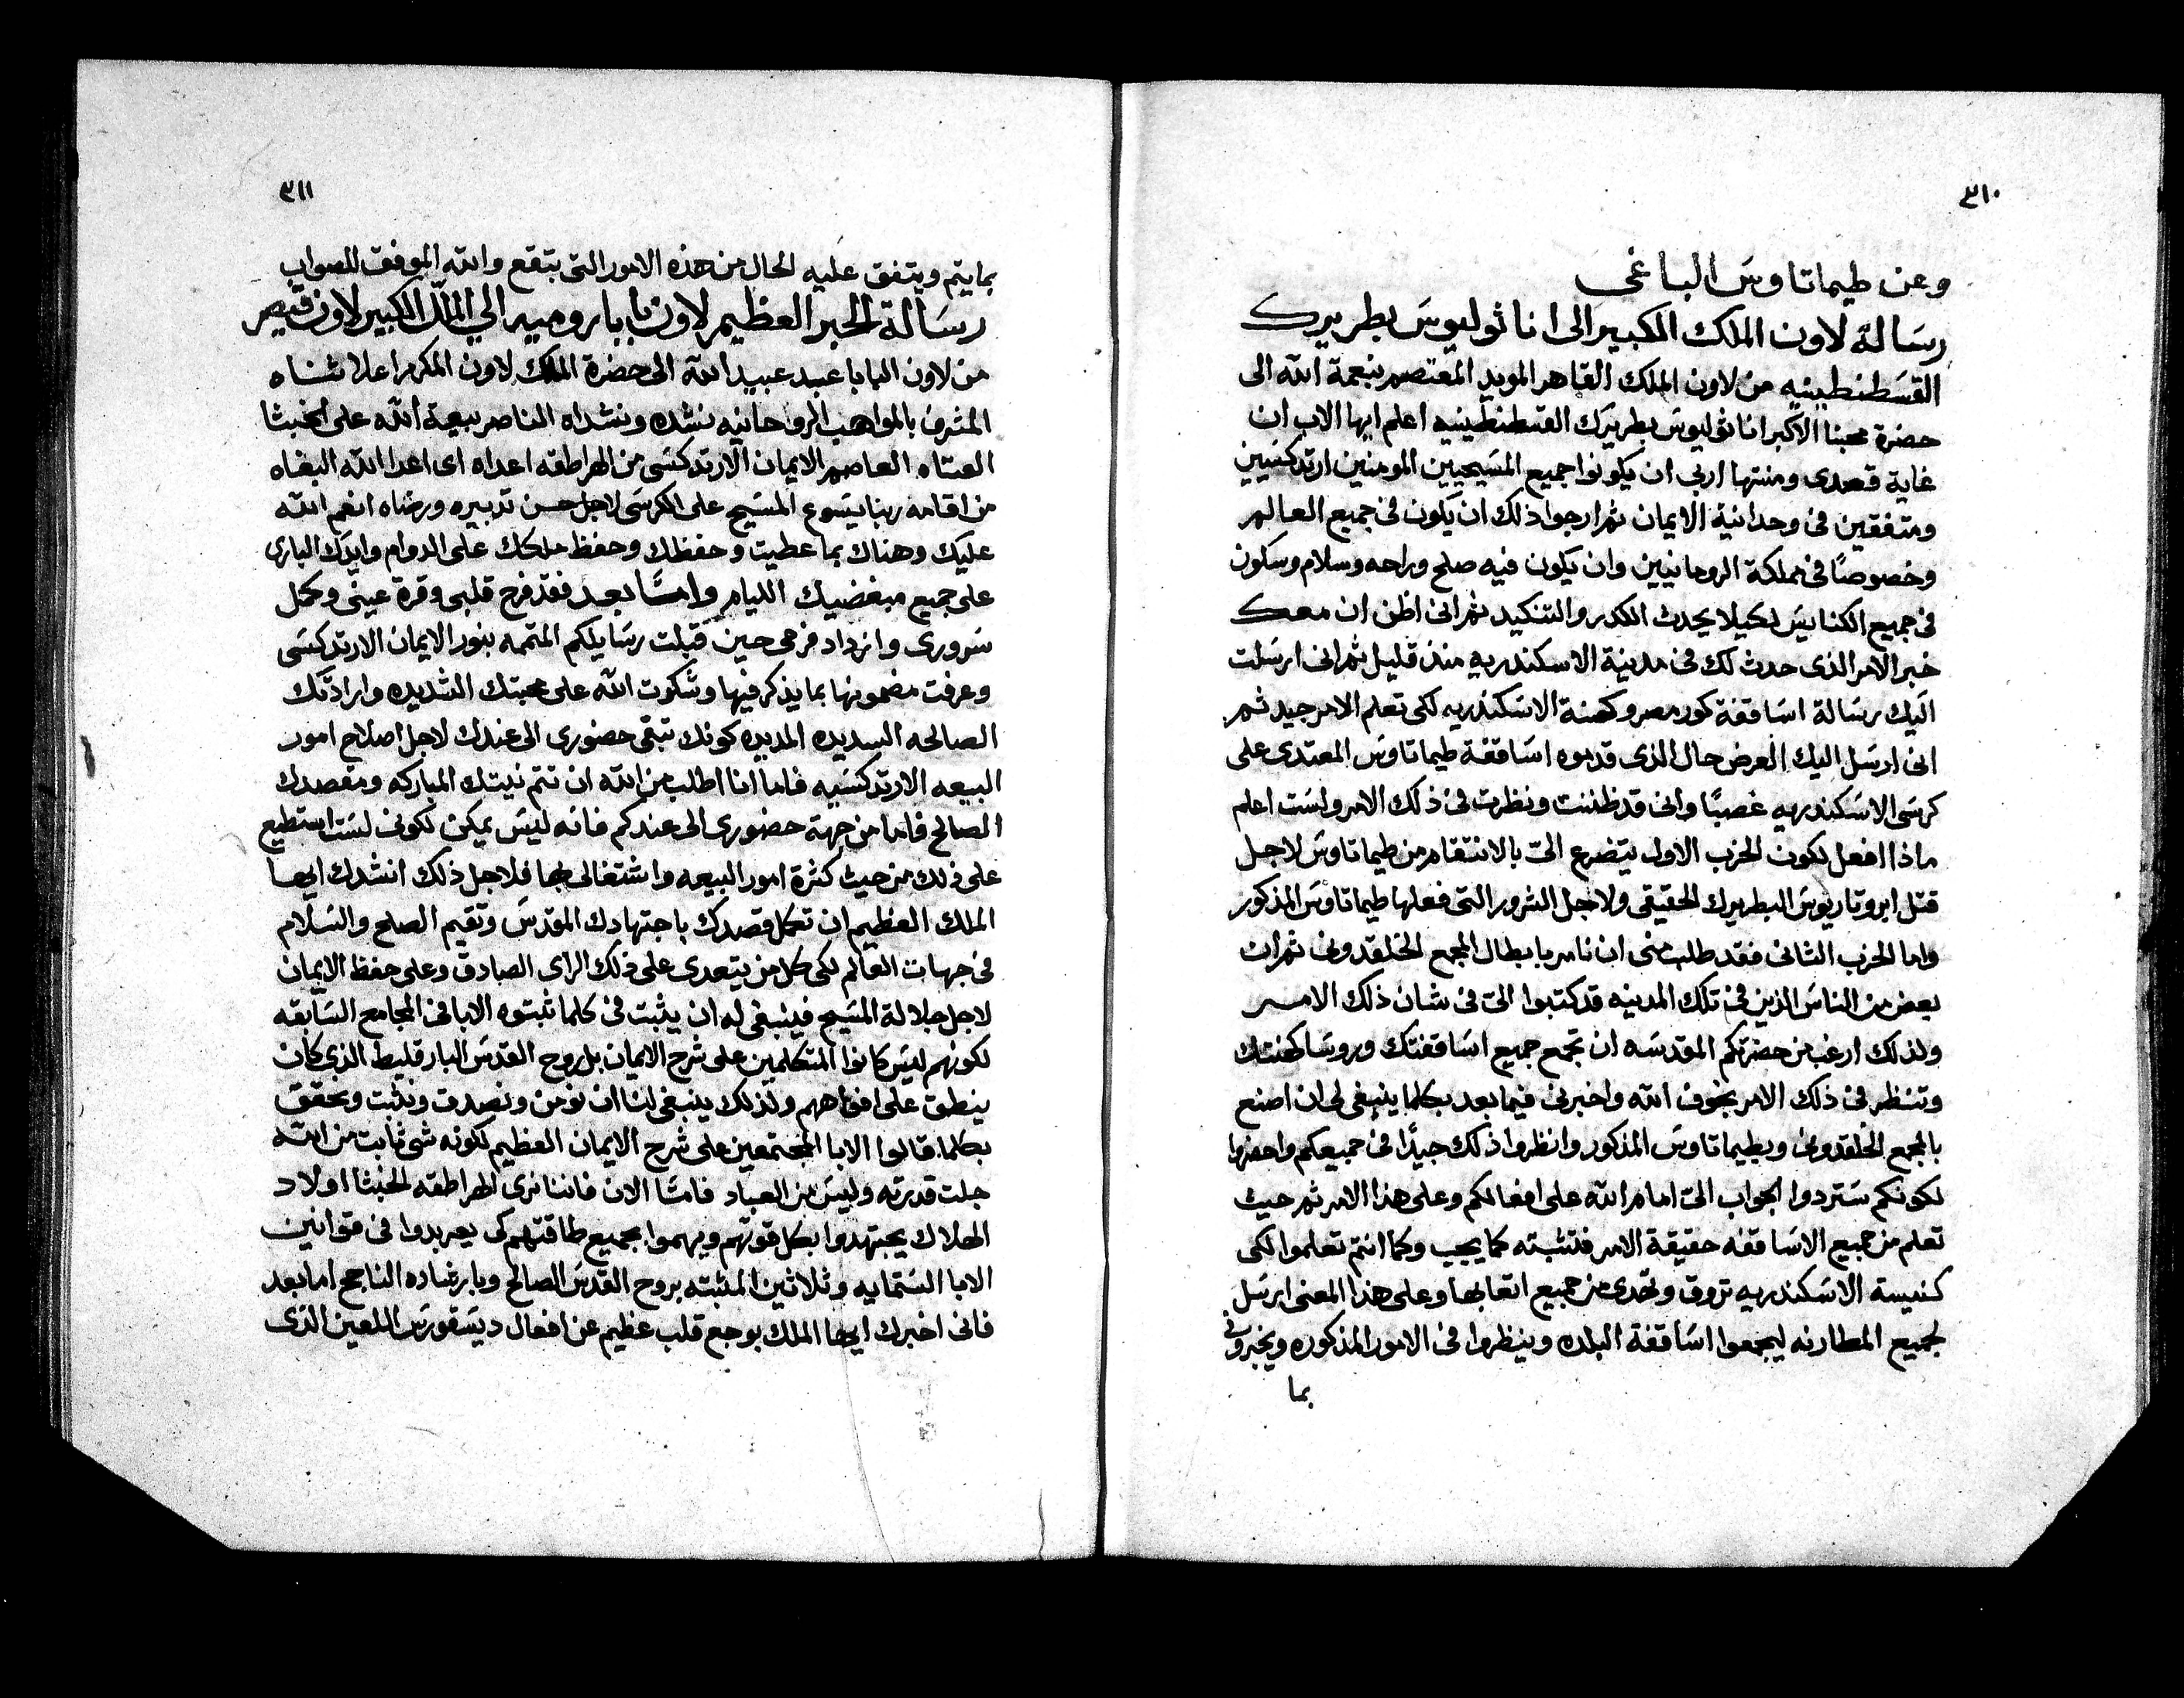 ٣١٠
وعن طيماتاوس الباغي
رسالة لاون الملك الكبير الى اناثوليوس بطريرك
القسطنطينيه من لاون الملك القاهر المويد المعتصم بنعمة الله الى
حضرة محبنا الاكبر اناثوليوس بطريرك القسطنطينيه اعلم ايها الاب ان
غاية قصدى ومنتها اربي ان يكونوا جميع المسيحيين المومنين ارتدكسيين
ومتفقين في وحدانية الايمان ثم ارجوا ذلك ان يكون في جميع العالم
وخصوصًا في مملكة الرومانيين وان يكون فيه صلح وراحه وسلام وسكون
في جميع الكنايس لكيلا يحدث الكدر والتنكيد ثم انى اظن ان معك
خبر الامر الذى حدث لك في مدينة الاسكندريه منذ قليل ثم انى ارسلت
اليك رسالة اساقفة كور مصر وكهنة الاسكندريه لكى تعلم الامر جيد ثم
انى ارسل اليك العرض حال الذى قدموه اساقفة طيماتاوس المعتدى على
كرسى الاسكندريه غصبًا وانى قد ظننت ونظرت في ذلك الامر ولست اعلم
ماذا افعل لكون الحزب الاول يتضرع الىّ بالانتقام من طيماتاوس لاجل
قتل ابروتاريوس البطريرك الحقيقى ولاجل الشرور التى فعلها طيماتاوس المذكور
واما الحزب الثانى فقد طلب منى ان نامر بابطال المجمع الخلقدونى ثم ان
بعض من الناس الذين في تلك المدينه قد كتبوا الىّ في شان ذلك الامر
ولذلك ارغب من حضرتكم المقدسه ان تجمع جميع اساقفتك وروسا كهنتك
وتنظر في ذلك الامر بخوف الله واخبرنى فيما بعد بكلما ينبغى لى ان اصنع
بالمجمع الخلقدونى وبطيماتاوس المذكور وانظروا ذلك جيدًا في جميعكم واحضروا
لكونكم ستردوا الجواب الىّ امام الله على افعالكم وعلى هذا الامر ثم حيث
تعلم من جميع الاساقفه حقيقة الامر فتثبته كما يجب وكما انتم تعلموا لكى
كنيسة الاسكندريه تروق وتهدى من جميع اتعابها وعلى هذا المعنى ارسل
لجميع المطارنه ليجمعوا اساقفة البلده وينظروا في الامور المذكوره ويخبرونى
بما
٣١١
بما يتم ويتفق عليه الحال من هذه الامور التى بتقع والله الموفق للصواب
رسالة الحبر العظيم لاون بابا روميه الي الملك الكبير لاون قيصر
من لاون البابا عبد عبيد الله الى حضرة الملك لاون المكرم اعلا شناه
المشرف بالمواهب الروحانيه نشده ونشداه الناصر بيعة الله على الخبثا
العتاه العاصم الايمان الارتدكسى من الهراطقه اعداه اى اعدا الله البغاه
من اقامه ربنا يسوع المسيح على الكرسى لاجل حسن تدبيره ورضاه انعم الله
عليك وهناك بما عطيت وحفظك وحفظ ملكك على الدوام وايدك البارى
على جميع مبغضيك الليام وامّا بعد فقد فرح قلبى وقرة عينى وكمل
سرورى وازداد فرحى حين قبلت رسايلكم المتممه بنور الايمان الارتدكسى
وعرفت مضمونها بما يذكر فيها وشكوت الله على محبتك الشديده وارادتك
الصالحه السديده المديده كونك تبتغى حضورى الى عندك لاجل اصلاح امور
البيعه الارتدكسيه فاما انا اطلب من الله ان تتم نيتك المباركه ومقصدك
الصالح فاما من جهة حضورى الى عندكم فانه ليس يمكن لكونى لست استطيع
على ذلك من حيث كثرة امور البيعه واشتغالى بها فلاجل ذلك انشدك ايها
الملك العظيم ان تعمل قصدك باجتهادك المقدس وتقيم الصلح والسلام
في جهات العالم لكى كل من يتعدى على ذلك الراى الصادق وعلى حفظ الايمان
لاجل جلالة المسيح فينبغى له ان يثبت في كلما ثبتوه الابا في المجامع السابقه
لكونهم ليس كانوا المتكلمين على شرح الايمان بل روح القدس البارقليط الذى كان
ينطق على افواههم ولذلك ينبغى لنا ان نومن ونصدق ونثبت ونحقق
بكلما قالوا الابا المجتمعين على شرح الايمان العظيم لكونه شى ثابت من الله
جلت قدرته وليس من العباد فامّا الان فاننا نرى الهراطقه الخبثا اولاد
الهلاك يجتهدوا بكل قوتهم ويهموا بجميع طاقتهم كى يعربدوا في قوانين
الابا الستمايه وثلاثين المثبته بروح القدس الصالح وبارشاده الناجح اما بعد
فانى اخبرك ايها الملك بوجع قلب عظيم عن افعال ديسقورس اللعين الذى